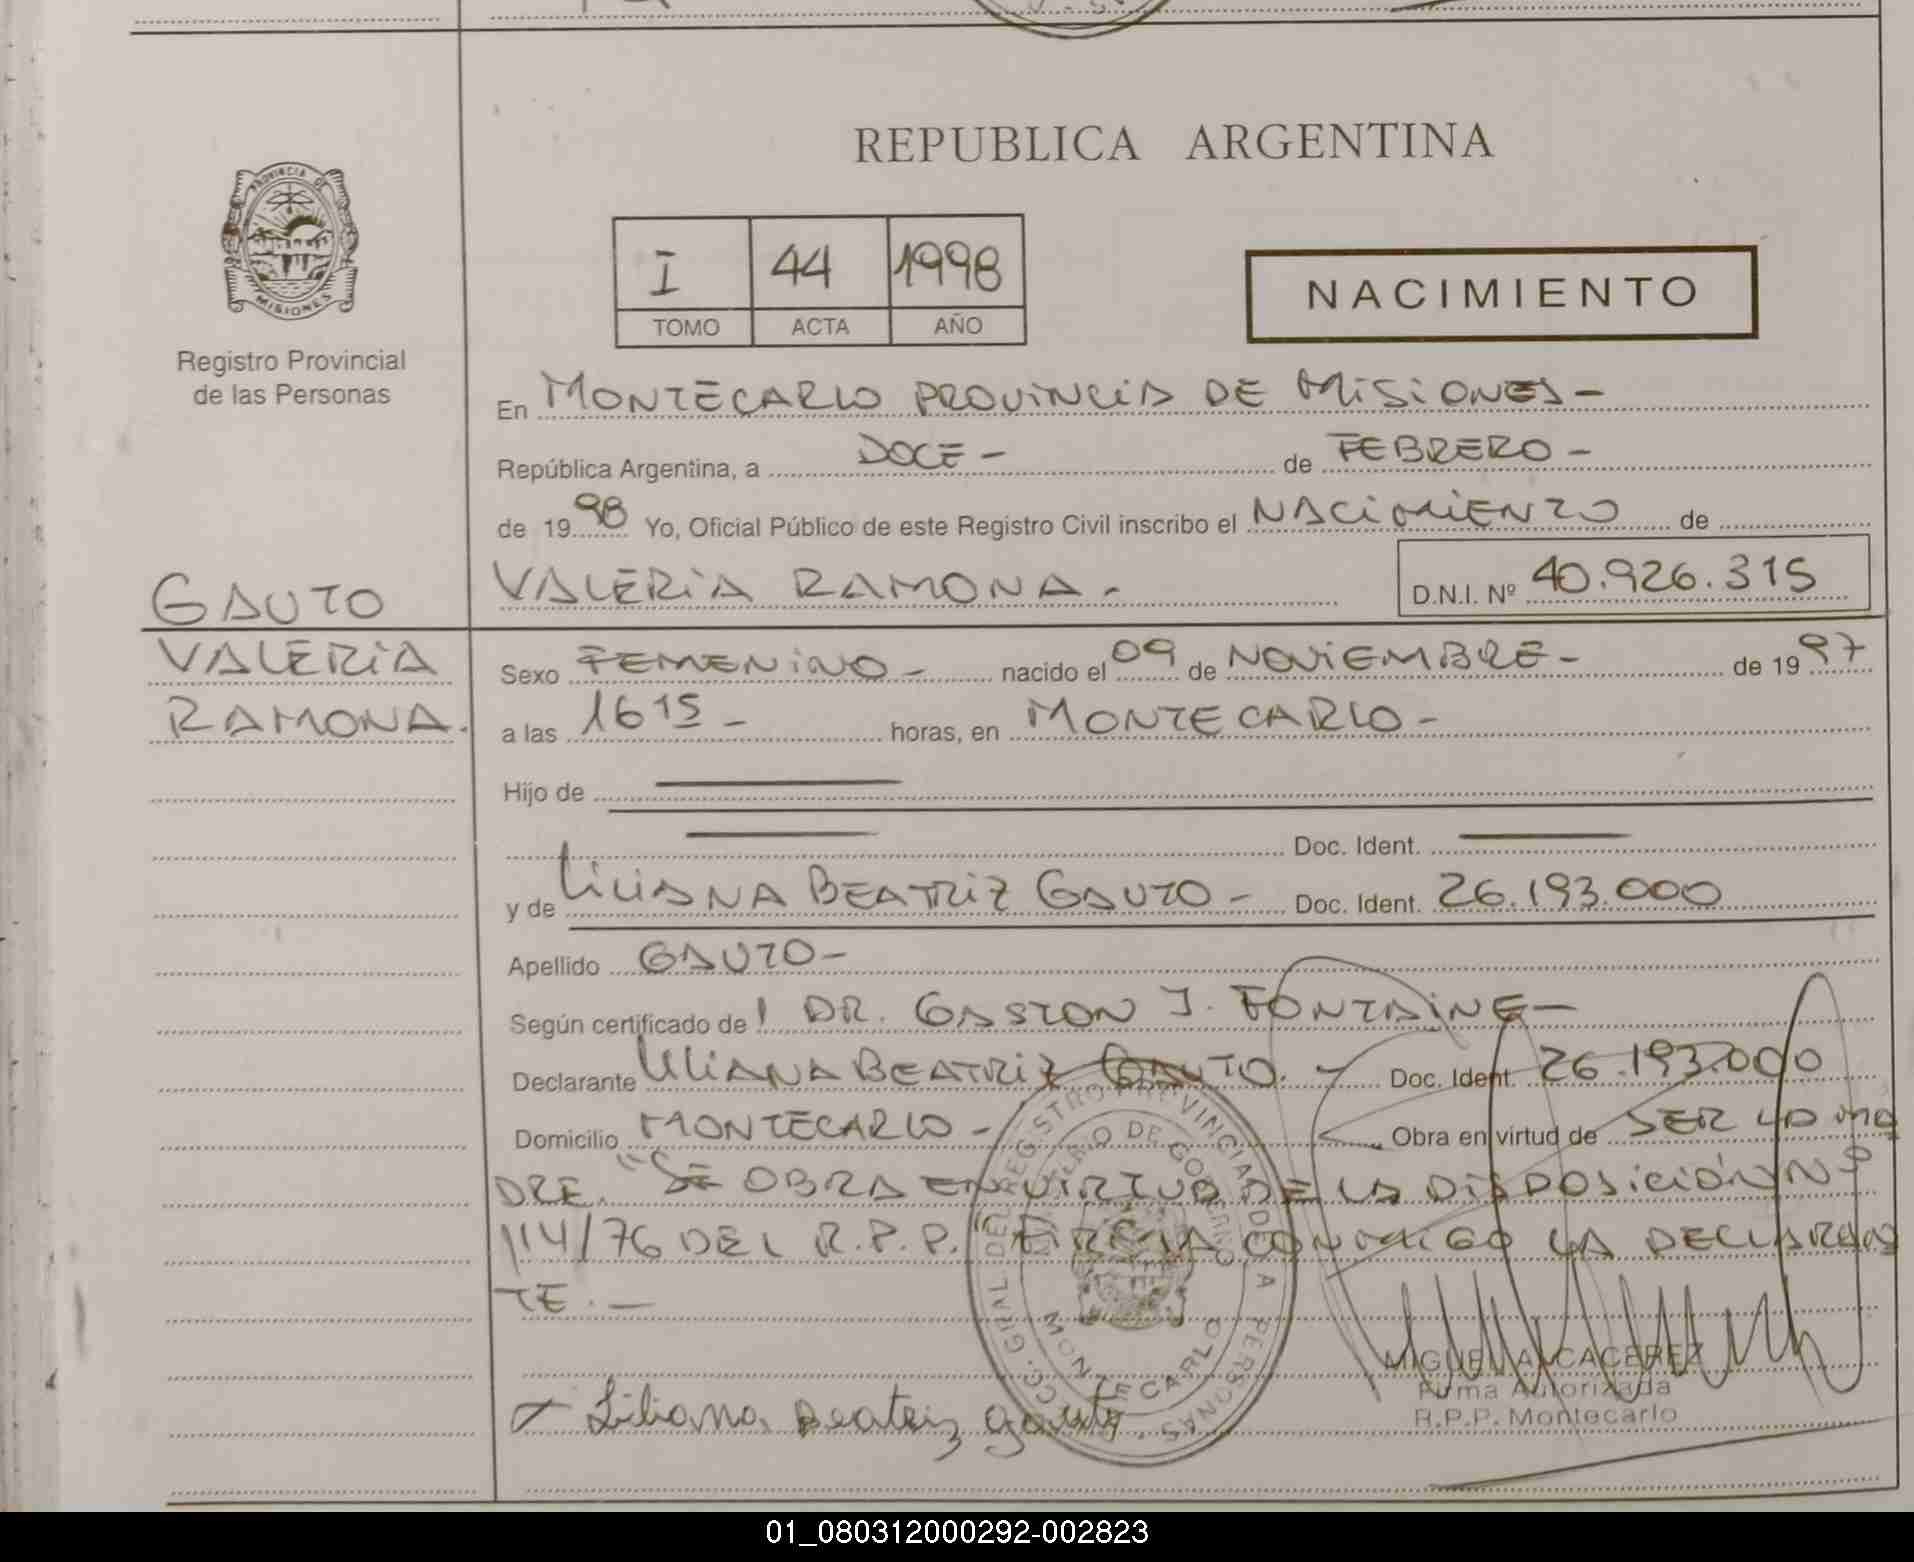 REPUBLICA ARGENTINA
PROVINCIA DE
MISIONES
Registro Provincial
de las Personas
I 44 1998
TOMO ACTA AÑO
NACIMIENTO
En MONTECARLO PROVINCIA DE MISIONES-
República Argentina, a DOCE- de FEBRERO-
de 1998 Yo, Oficial Público de este Registro Civil inscribo el NACIMIENTO de
VALERIA RAMONA.- D.N.I. Nº 40.926.315
GAUTO
VALERIA
RAMONA.
Sexo FEMENINO- nacido el 09 de NOVIEMBRE- de 1997
a las 1615- horas, en MONTECARLO-
Hijo de
Doc. Ident.
y de LILIANA BEATRIZ GAUTO- Doc. Ident. 26.193.000
Apellido GAUTO-
Según certificado de l DR. GASTON J. FONTAINE-
Declarante LILIANA BEATRIZ GAUTO.- Doc. Ident. 26.193.000
Domicilio MONTECARLO- Obra en virtud de SER LA MA
DRE. "SE OBRA EN VIRTUD DE LA DISPOSICIÓN Nº
114/76 DEL R.P.P." FIRMA CONMIGO LA DECLARAN
TE.-
Liliana Beatriz Gauto
MONTECARLO
MIGUEL A. CACEREZ
Firma Autorizada
R.P.P. Montecarlo
01_080312000292-002823